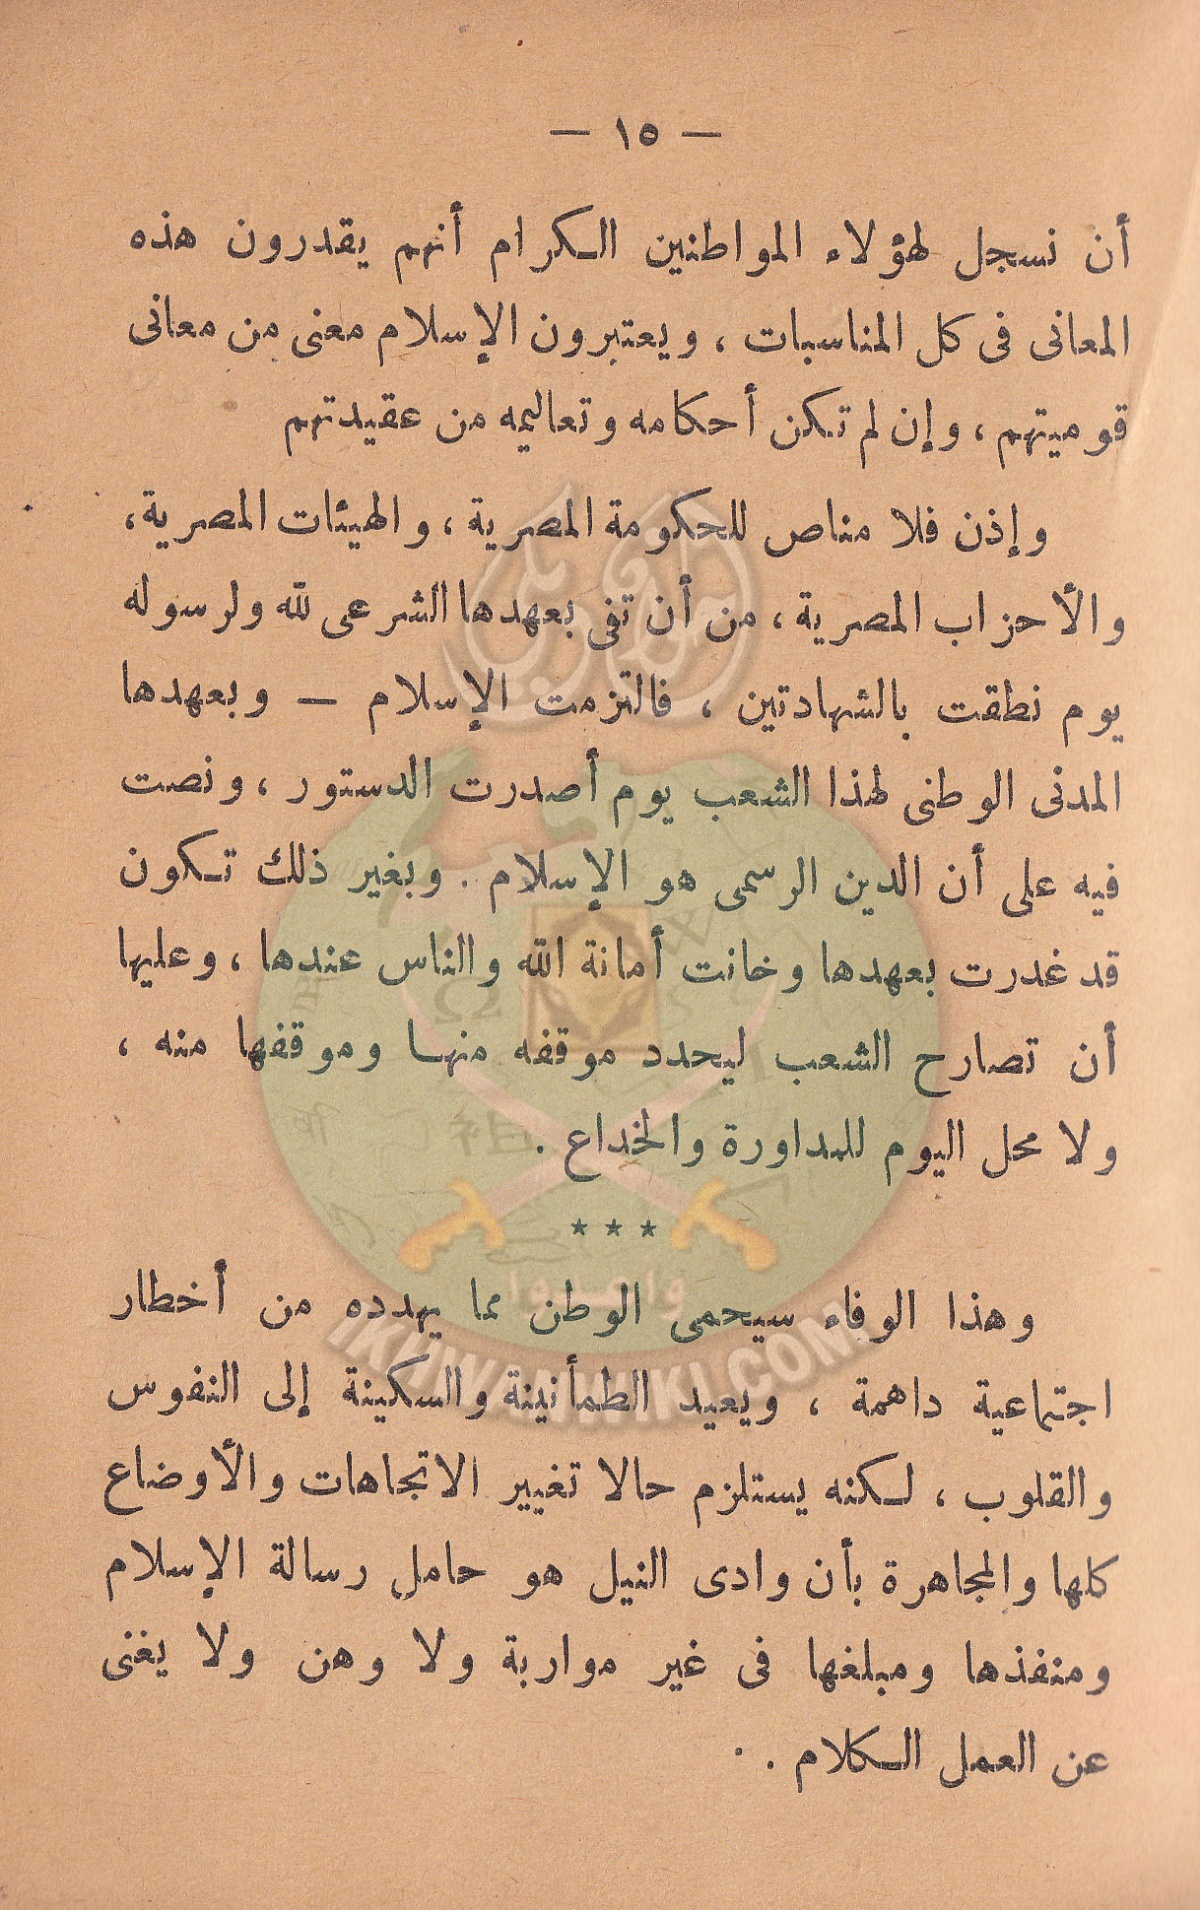 — ١٥ —
أن نسجل لهؤلاء المواطنين الكرام أنهم يقدرون هذه
المعانى فى كل المناسبات ، ويعتبرون الإسلام معنى من معانى
قوميتهم ، وإن لم تكن أحكامه وتعاليمه من عقيدتهم
وإذن فلا مناص للحكومة المصرية ، والهيئات المصرية ،
والأحزاب المصرية ، من أن تفى بعهدها الشرعى لله ولرسوله
يوم نطقت بالشهادتين ، فالتزمت الإسلام — وبعهدها
المدنى الوطنى لهذا الشعب يوم أصدرت الدستور ، ونصت
فيه على أن الدين الرسمى هو الإسلام . وبغير ذلك تكون
قد غدرت بعهدها وخانت أمانة الله والناس عندها ، وعليها
أن تصارح الشعب ليحدد موقفه منها وموقفها منه ،
ولا محل اليوم للمداورة والخداع .
* * *
وهذا الوفاء سيحمى الوطن مما يهدده من أخطار
اجتماعية داهمة ، ويعيد الطمأنينة والسكينة إلى النفوس
والقلوب ، لكنه يستلزم حالا تغيير الاتجاهات والأوضاع
كلها والمجاهرة بأن وادى النيل هو حامل رسالة الإسلام
ومنفذها ومبلغها فى غير مواربة ولا وهن ولا يغنى
عن العمل الكلام . .
وأعدوا
IKHWANWIKI.COM